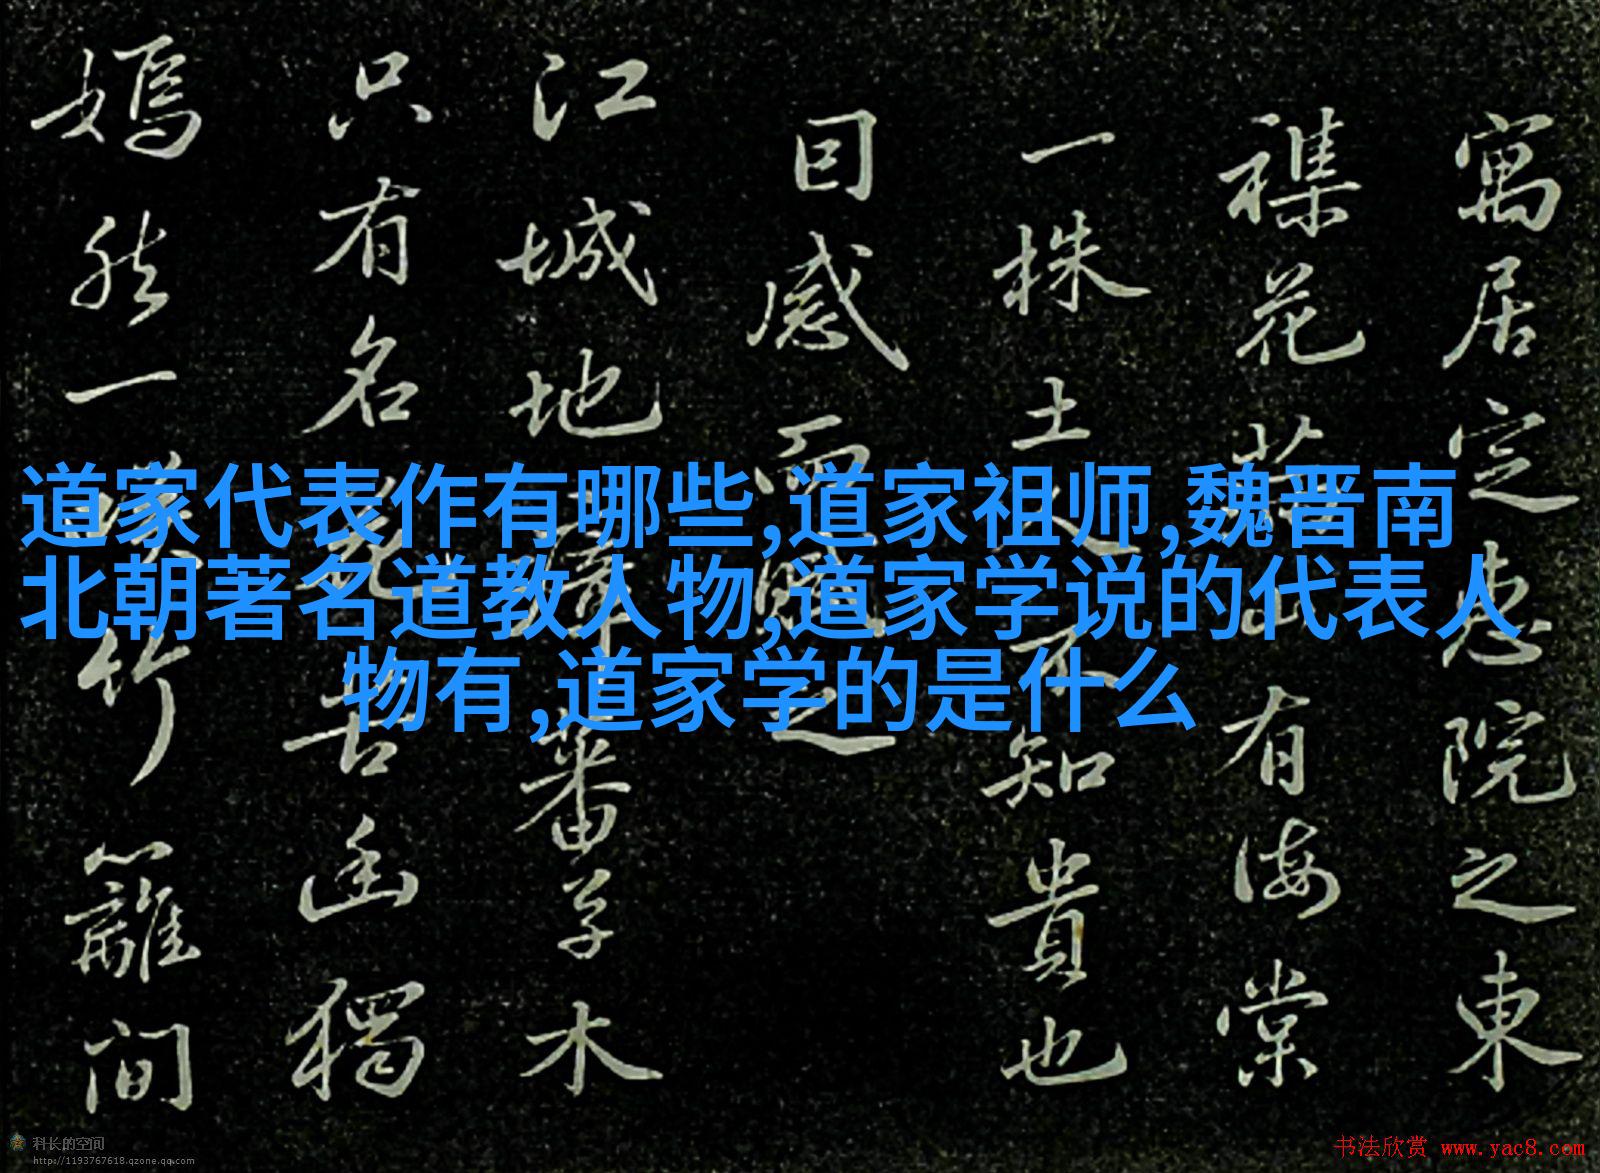 道家代表作有哪些,道家祖师,魏晋南
北朝著名道教人物,道家学说的代表人
物有,道家学的是什么
寓居定惠院之東
襍花滿山有海棠
一株土人不知貴也
囙感而賦之
江城地瘴蕃草木
只有名花苦幽獨
嫣然一笑竹籬間
科长的空间
http://1193767618.qzone.qq.com
书法欣赏 www.yac8.com